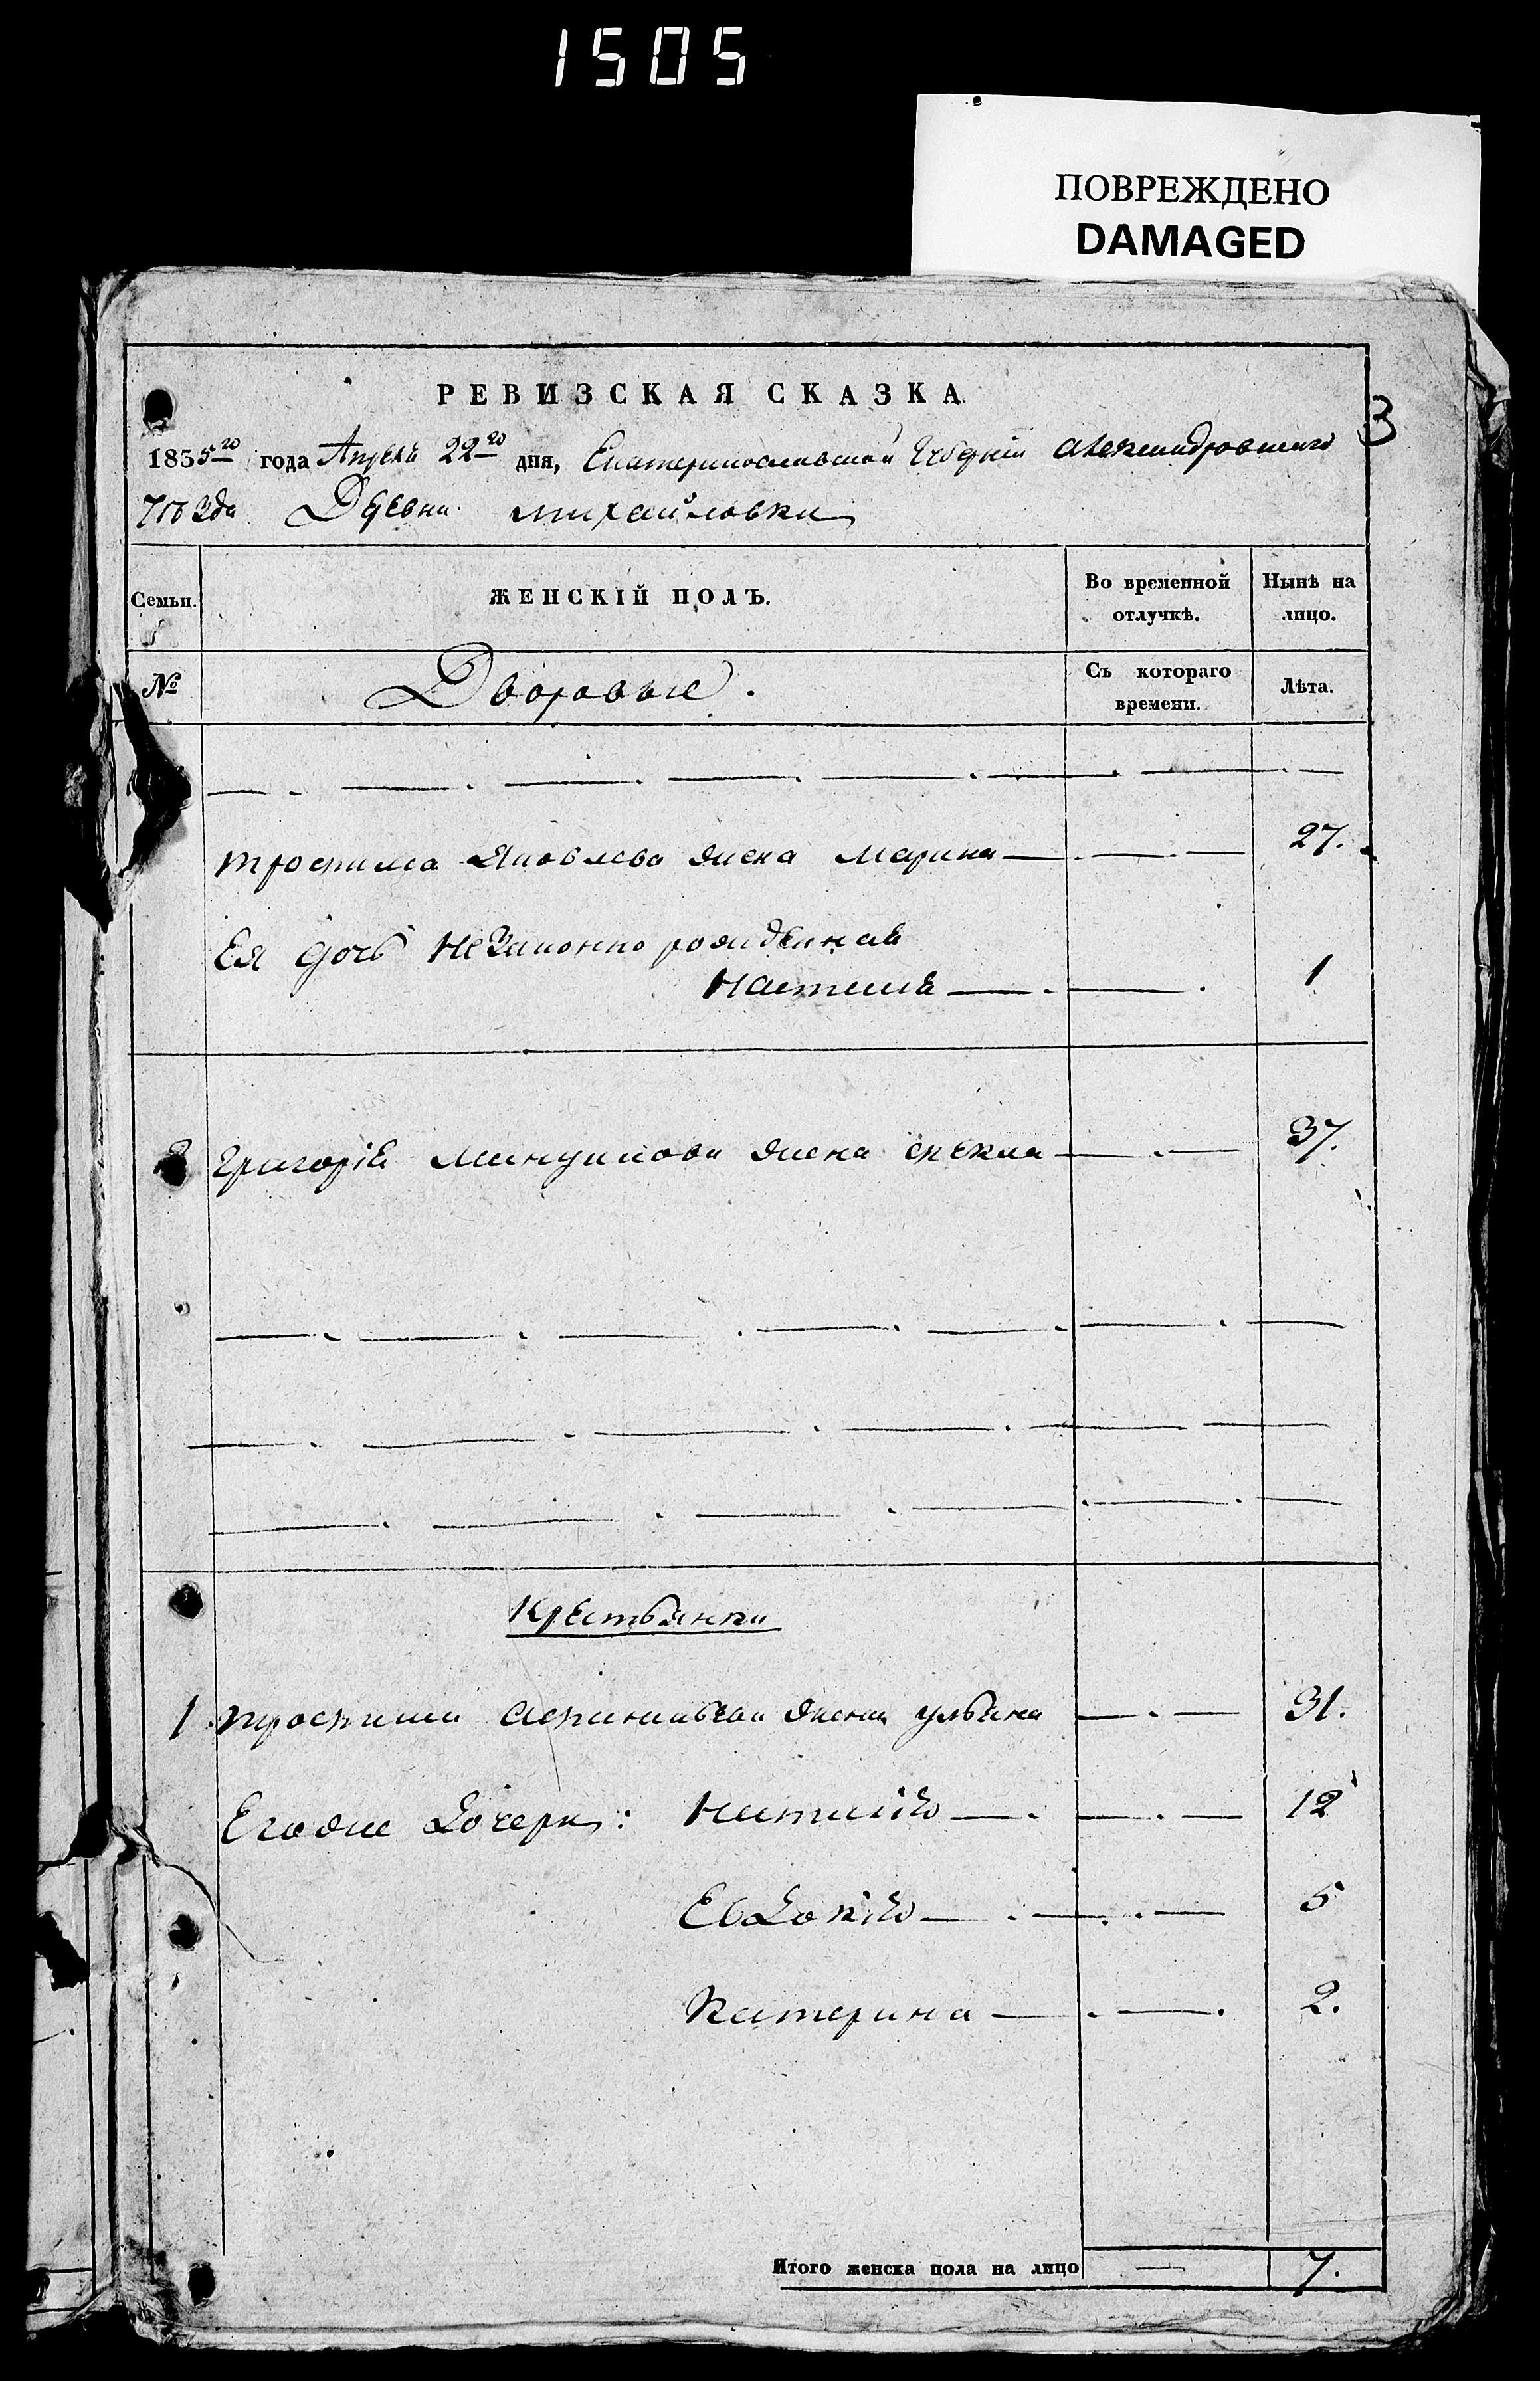 1505
ПОВРЕЖДЕНО
DAMAGED
РЕВИЗСКАЯ СКАЗКА.
3
1835го года Апреля 22го дня, Екатеринославской Губерніи Александровскаго
Уѣзда Деревни Михайловки
Семьи. ЖЕНСКІЙ ПОЛЪ. Во временной отлучкѣ. Нынѣ на лицо.
№ Дворовые. Съ котораго времени. Лѣта.
трофима Яковлева жена марина 27.
Ея дочь незаконно рожденная
Настасія 1
2 григорія жена фекла 37.
Крестьянки
1 трофима жена ульяна 31.
Егоже дочери: Настасія 12
Евдокія 5
Катерина 2.
Итого женска пола на лицо — 7.